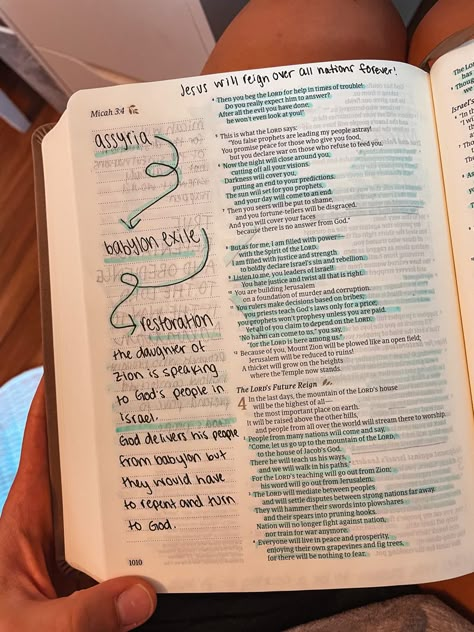 Jesus will reign over all nations forever!
Micah 3:4
assyria
babylon exile
restoration
the daughter of
zion is speaking
to God's people in
israel.
God delivers his people
from babylon but
they would have
to repent and turn
to God.
1010
4 Then you beg the LORD for help in times of trouble!
Do you really expect him to answer?
After all the evil you have done,
he won't even look at you!"
5 This is what the LORD says:
"You false prophets are leading my people astray!
You promise peace for those who give you food,
but you declare war on those who refuse to feed you.
6 Now the night will close around you,
cutting off all your visions.
Darkness will cover you,
putting an end to your predictions.
The sun will set for you prophets,
and your day will come to an end.
7 Then you seers will be put to shame,
and you fortune-tellers will be disgraced.
And you will cover your faces
because there is no answer from God."
8 But as for me, I am filled with power—
with the Spirit of the LORD.
I am filled with justice and strength
to boldly declare Israel's sin and rebellion.
9 Listen to me, you leaders of Israel!
You hate justice and twist all that is right.
10 You are building Jerusalem
on a foundation of murder and corruption.
11 You rulers make decisions based on bribes;
you priests teach God's laws only for a price;
you prophets won't prophesy unless you are paid.
Yet all of you claim to depend on the LORD.
"No harm can come to us," you say,
"for the LORD is here among us."
12 Because of you, Mount Zion will be plowed like an open field;
Jerusalem will be reduced to ruins!
A thicket will grow on the heights
where the Temple now stands.
The LORD's Future Reign
4 In the last days, the mountain of the LORD's house
will be the highest of all—
the most important place on earth.
It will be raised above the other hills,
and people from all over the world will stream there to worship.
2 People from many nations will come and say,
"Come, let us go up to the mountain of the LORD,
to the house of Jacob's God.
There he will teach us his ways,
and we will walk in his paths."
For the LORD's teaching will go out from Zion;
his word will go out from Jerusalem.
3 The LORD will mediate between peoples
and will settle disputes between strong nations far away.
They will hammer their swords into plowshares
and their spears into pruning hooks.
Nation will no longer fight against nation,
nor train for war anymore.
4 Everyone will live in peace and prosperity,
enjoying their own grapevines and fig trees,
for there will be nothing to fear.